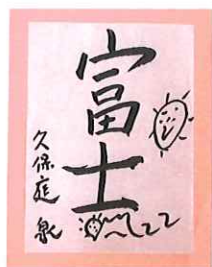 富士
久保庭 泉